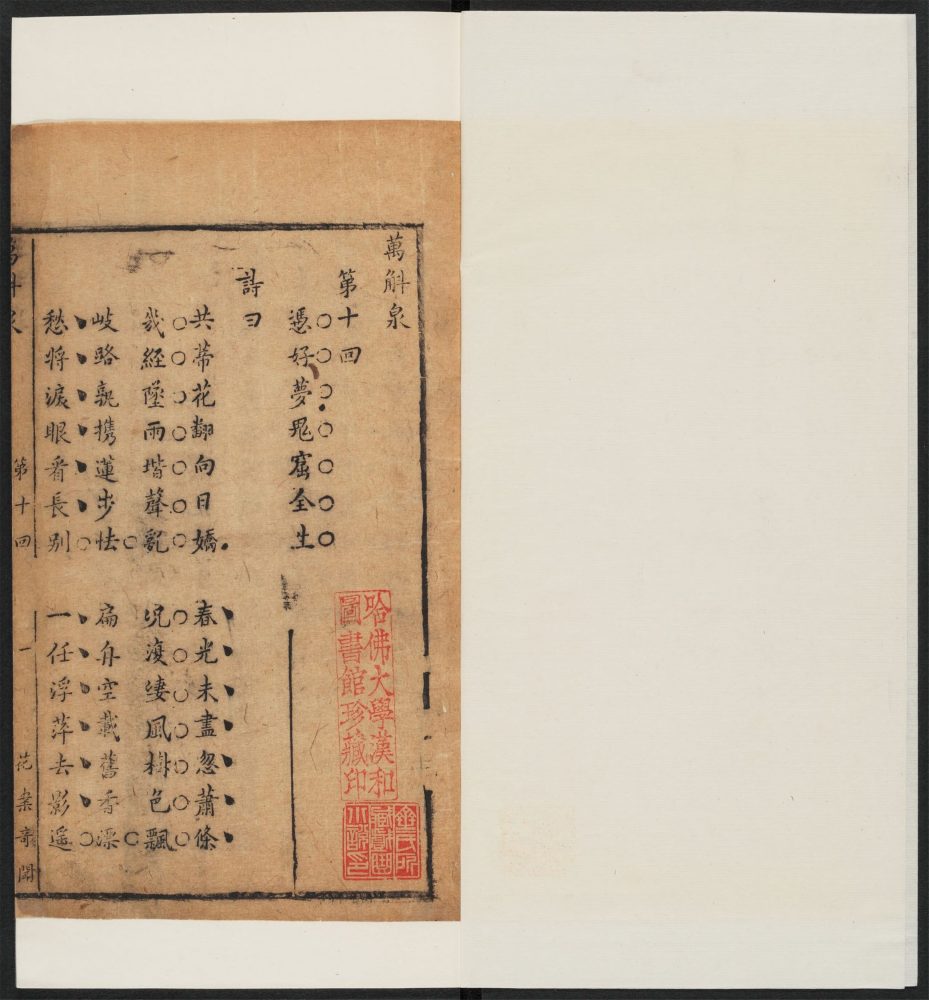 萬斛泉
第十回
憑好夢鬼窟全生
詩曰
共蒂花翻向日嬌 春光未盡忽蕭條
幾經墜雨堦聲亂 況復淒風樹色飄
岐路孰携蓮步怯 扁舟空載舊香漂
愁將淚眼看長別 一任浮萍去影遥
第十回 一 花案奇聞
哈佛大學漢和
圖書館珍藏印